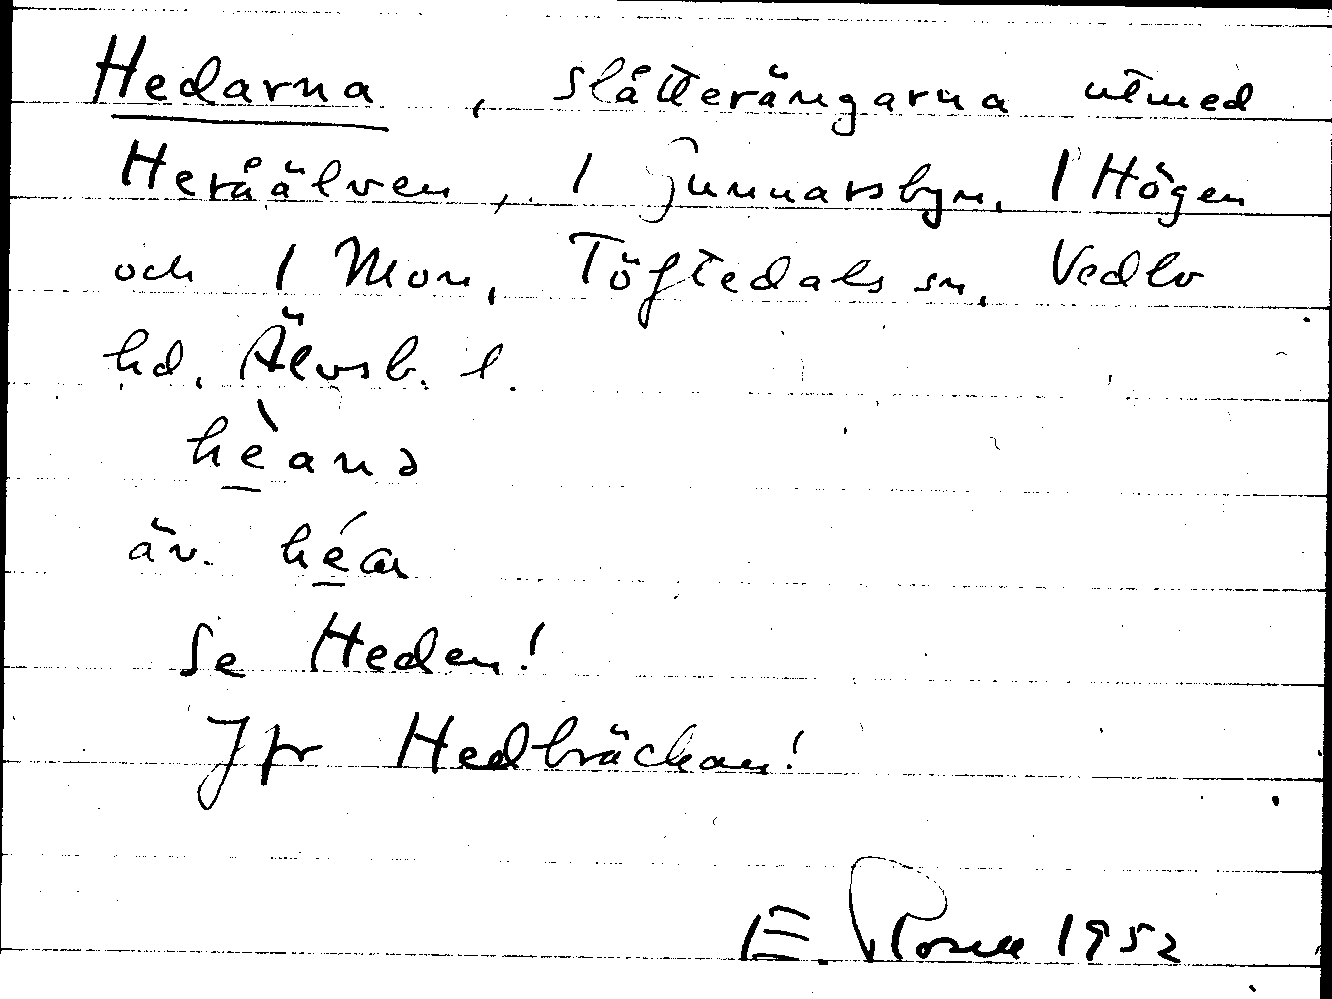 Hedarna, slåtterängarna utmed
Heråälven, 1 Gunnarsbyn, 1 Högen
och 1 Mon, Töftedals sn, Vedbo
hd. Älvsb. l.
hèanə
äv. héa
Se Heden!
Jfr Hedbräckan!
E. Rosell 1952